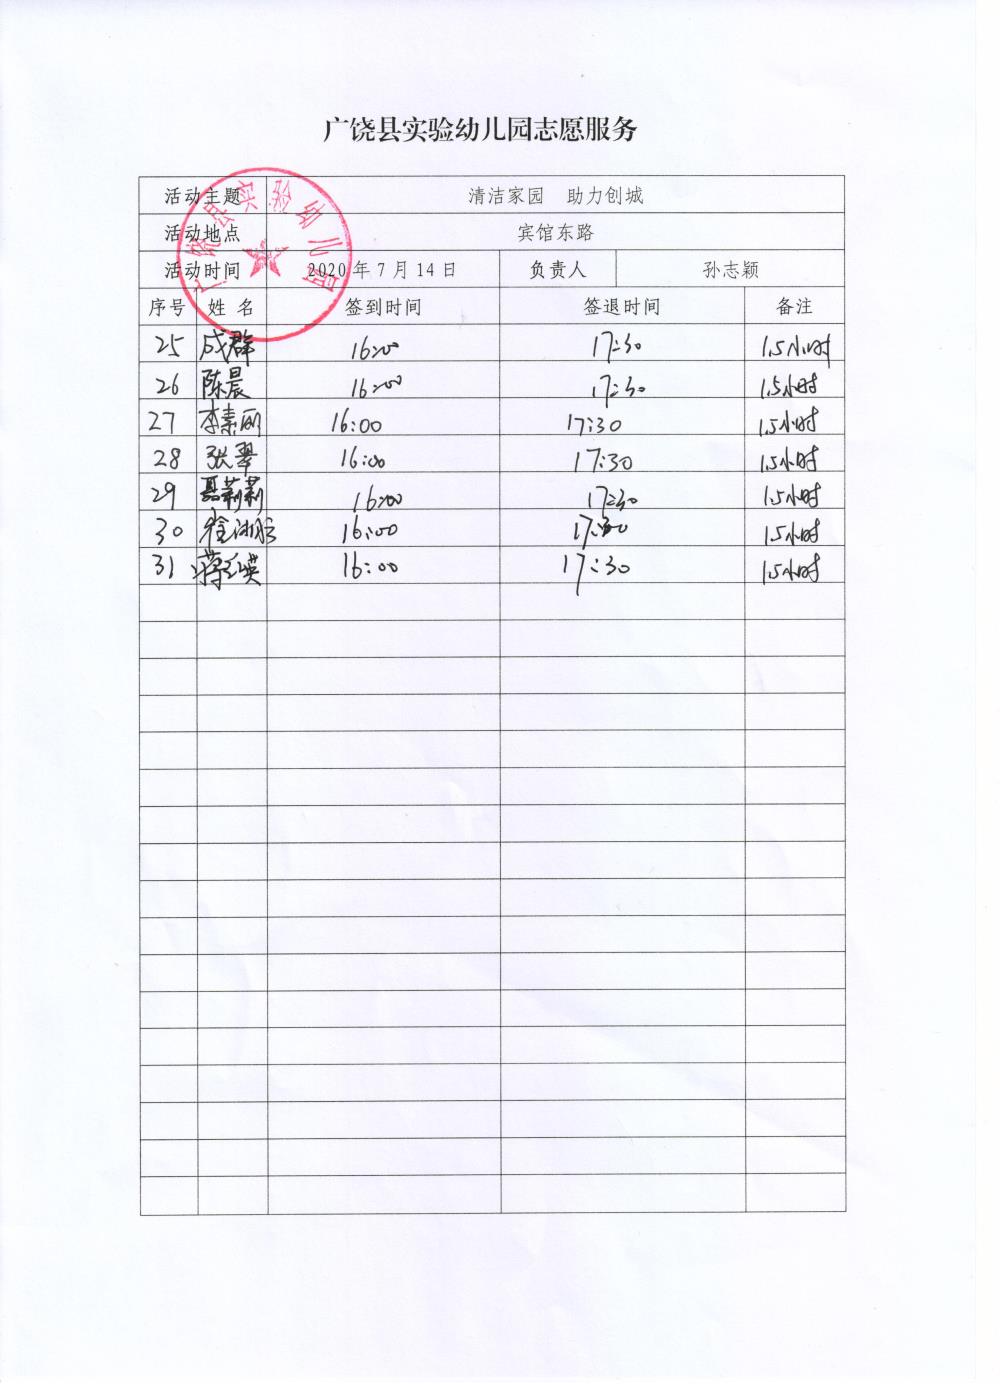 广饶县实验幼儿园志愿服务
活动主题 清洁家园 助力创城
活动地点 宾馆东路
活动时间 2020年7月14日 负责人 孙志颖
广饶县实验幼儿园
序号 姓名 签到时间 签退时间 备注
25 成群 16:00 17:30 1.5小时
26 陈晨 16:00 17:30 1.5小时
27 李素丽 16:00 17:30 1.5小时
28 张翠 16:00 17:30 1.5小时
29 聂莉莉 16:00 17:30 1.5小时
30 16:00 17:30 1.5小时
31 蒋红英 16:00 17:30 1.5小时